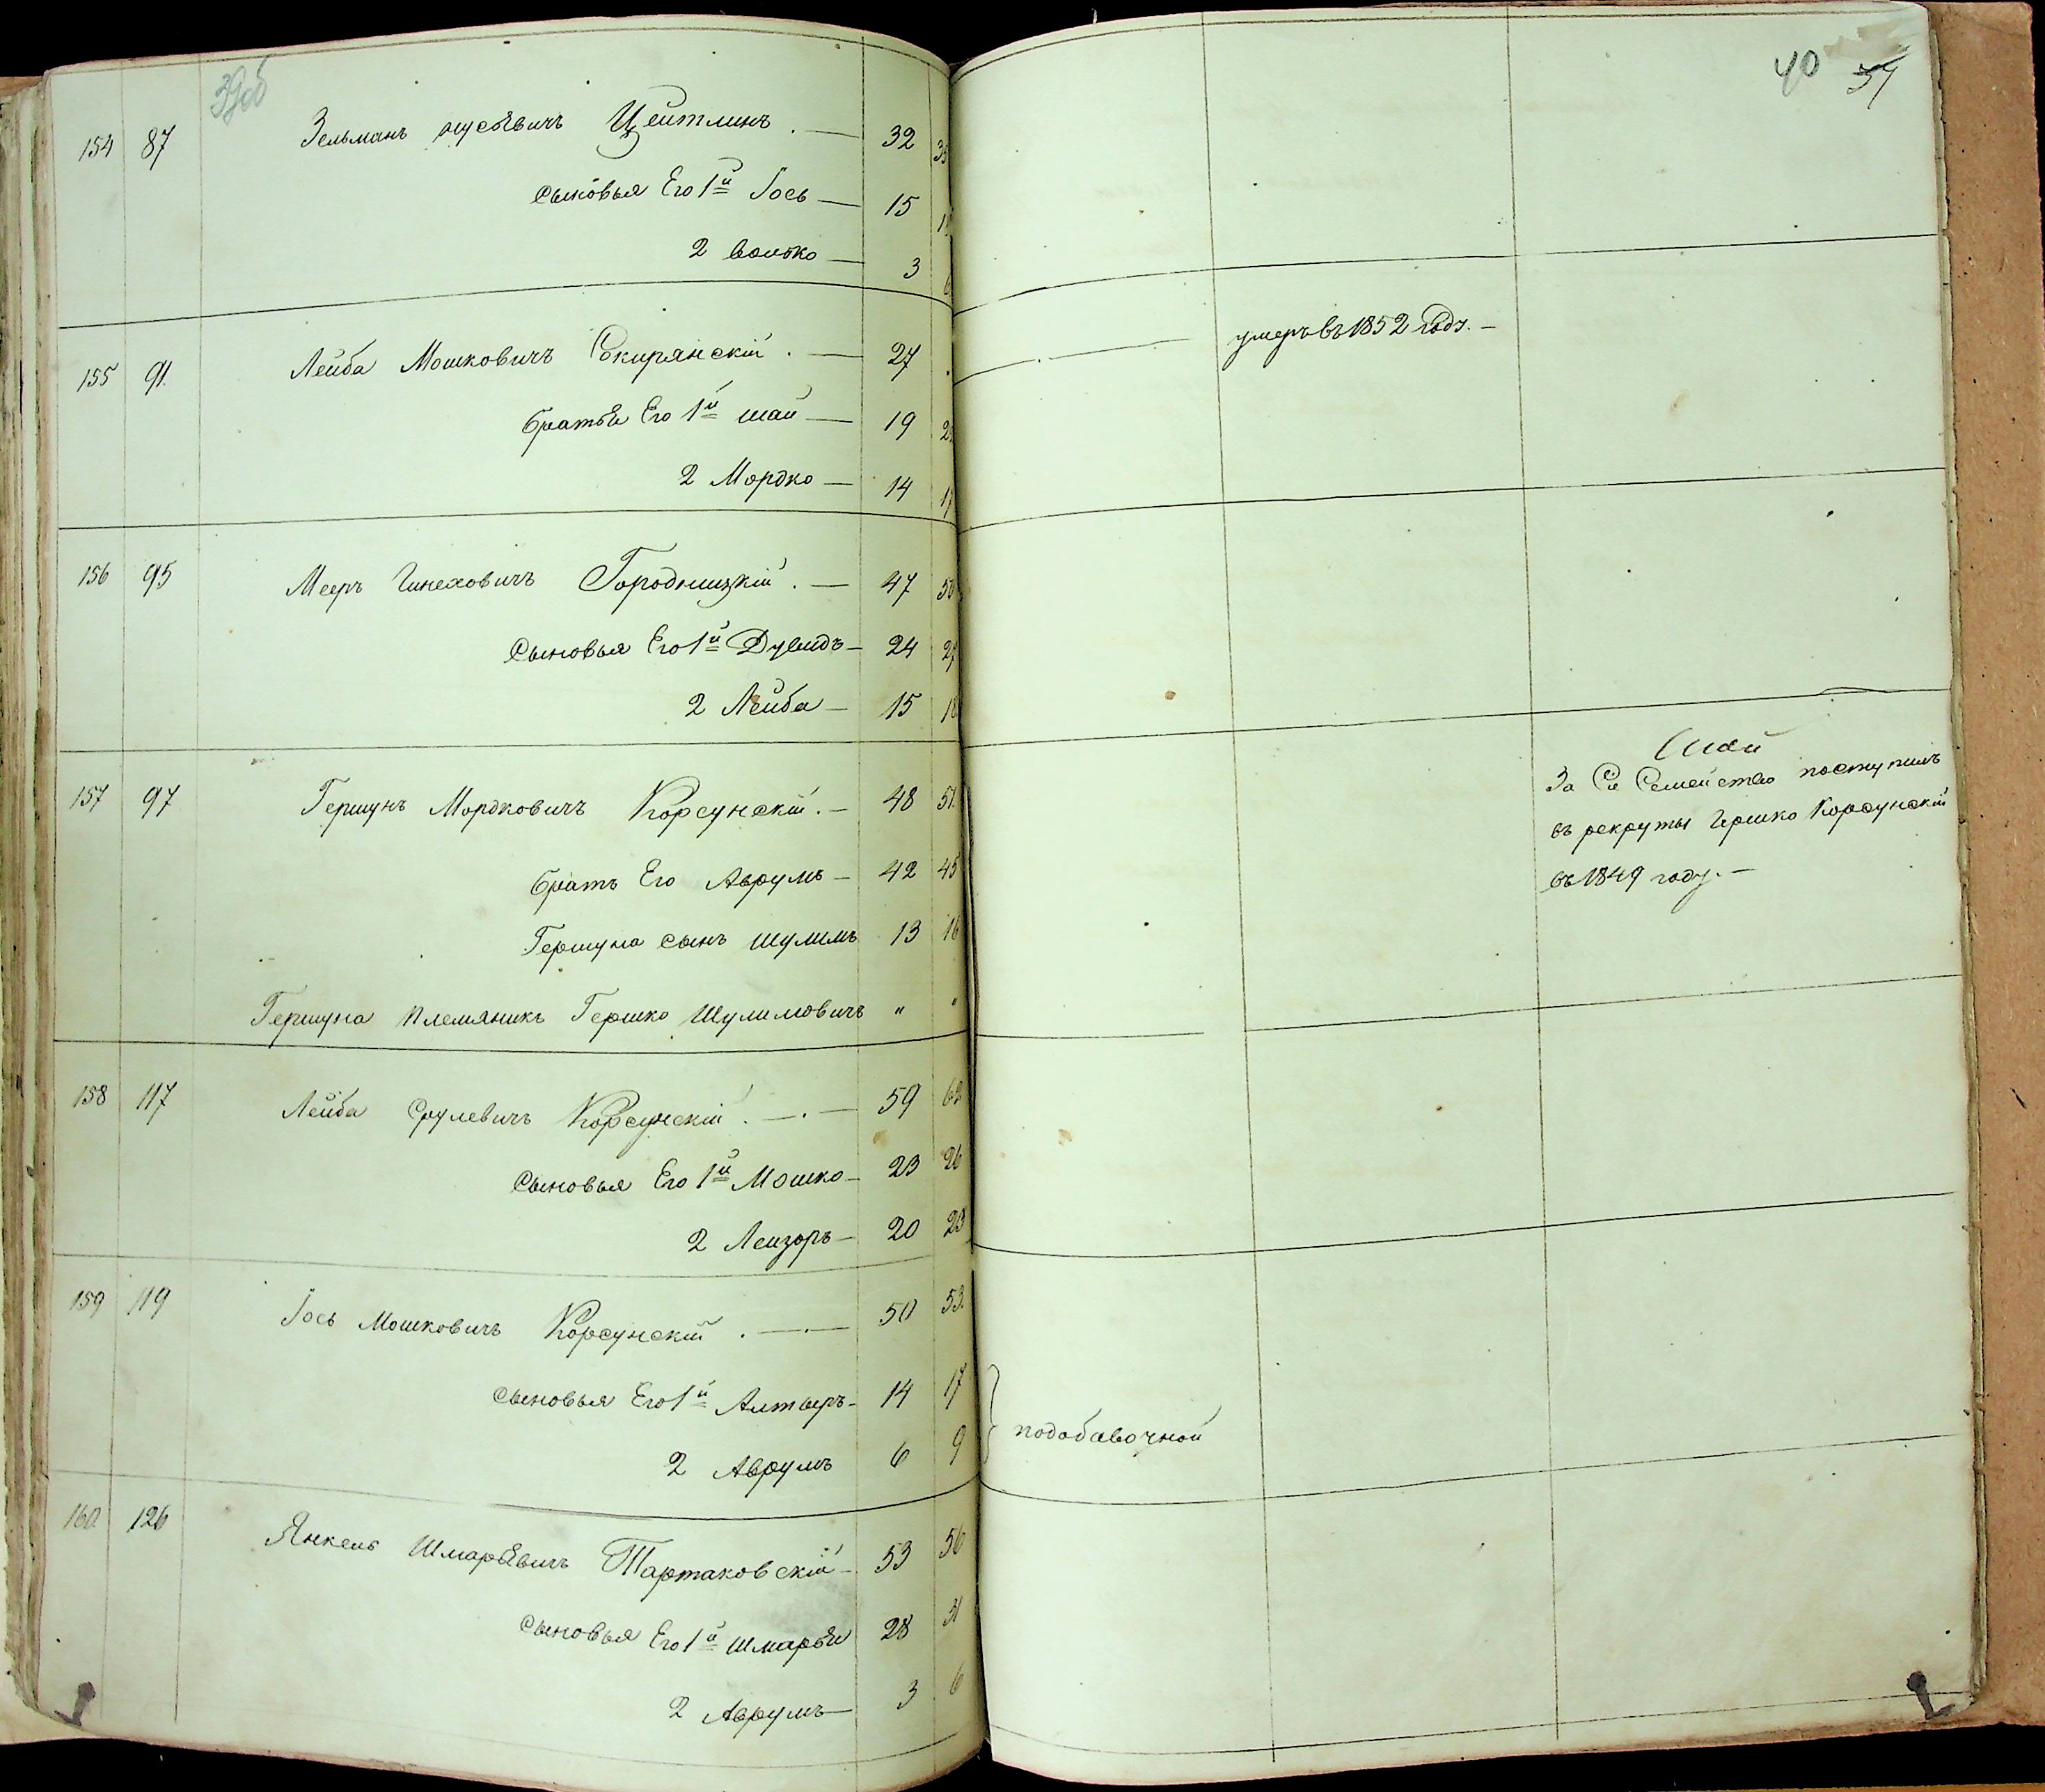 39об
154 87 Зельманъ Цейтлинъ . — 32 35
сыновья Его 1й Іось — 15
2 Волько — 3 6
155 91. Лейба Мошковичъ Сокирянскій . — 27
братья Его 1й Шай — 19
2 Мордко — 14 17
156 95 Мееръ Городницкій . — 47 50
Сыновья Его 1й Дувидъ — 24 27
2 Лейба — 15 18
157 97 Гершунъ Мордковичъ Корсунскій . — 48 51.
братъ Его Аврумъ — 42 45
Гершуна сынъ Шулимъ 13 16
Гершуна племяникъ Гершко Шулимовичъ " "
158 117 Лейба Срулевичъ Корсунскій . — . — 59 62
Сыновья Его 1й Мошко — 23 26
2 Лейзоръ — 20 23
159 119 Іось Мошковичъ Корсунскій . — . — 50 53.
сыновья Его 1й Алтыръ — 14 17
2 Аврумъ 6 9
160 126 Янкель Шмарьевичъ Тартаковскій — 53 56
Сыновья Его 1й Шмарья 28 31
2 Аврумъ — 3 6
40 37
умеръ въ 1852 году. —
За Сіе Семейство поступилъ
въ рекруты Гершко Корсунскій
въ 1849 году. —
подобавочной